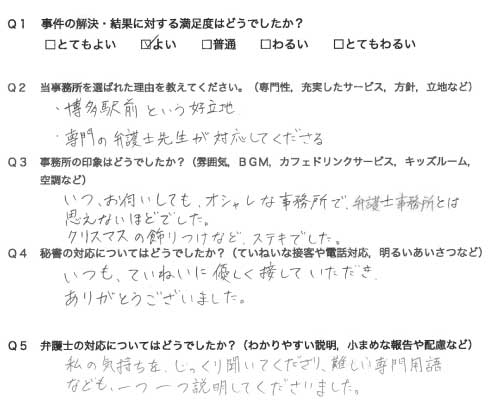 Q1 事件の解決・結果に対する満足度はどうでしたか？
□とてもよい ☑よい □普通 □わるい □とてもわるい
Q2 当事務所を選ばれた理由を教えてください。（専門性，充実したサービス，方針，立地など）
・博多駅前という好立地
・専門の弁護士先生が対応してくださる
Q3 事務所の印象はどうでしたか？（雰囲気，BGM，カフェドリンクサービス，キッズルーム，
空調など）
いつ、お伺いしても、オシャレな事務所で、弁護士事務所とは
思えないほどでした。
クリスマスの飾りつけなど、ステキでした。
Q4 秘書の対応についてはどうでしたか？（ていねいな接客や電話対応，明るいあいさつなど）
いつも、ていねいに優しく接していただき、
ありがとうございました。
Q5 弁護士の対応についてはどうでしたか？（わかりやすい説明，小まめな報告や配慮など）
私の気持ちを、じっくり聞いてくださり、難しい専門用語
なども、一つ一つ説明してくださいました。